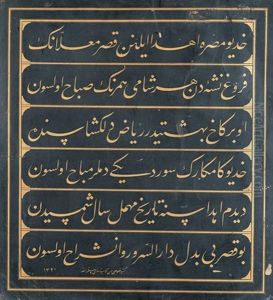 خدیو مصره اهدا ایلینن قصر معلانك
فروغ نشئه دن هر شامی همرنك صباح اولسون
او بر کاخ بهشتیدر ریاض دلکشا پسنده
خدیو کامکارك سوردیکی دملر مباح اولسون
دیدم اهداسنه تاریخ مهمل سال شمسیدن
بو قصر بی بدل دار السرور و انشراح اولسون
۱۳۲۰